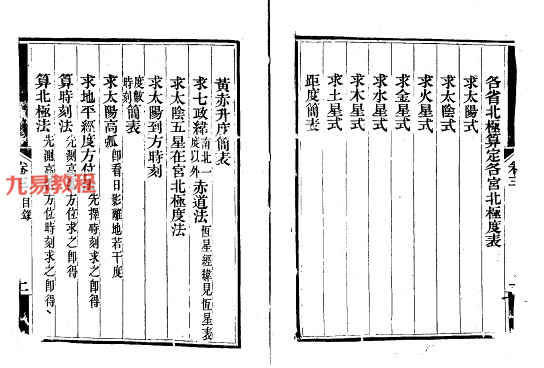 各省北極算定各宮北極度表
求太陽式
求太陰式
求火星式
求金星式
求水星式
求木星式
求土星式
距度簡表
卷三
黃赤升度簡表
求七政緯南北一度以外赤道法恆星經緯見恆星表
求太陰五星在宮北極度法
求太陽到方時刻
度數時刻簡表
求太陽高弧即看日影離地若干度
求地平經度方位先擇時刻求之即得
算時刻法先測高方位求之即得
算北極法先測高方位時刻求之即得
卷
目錄
二
九易教程